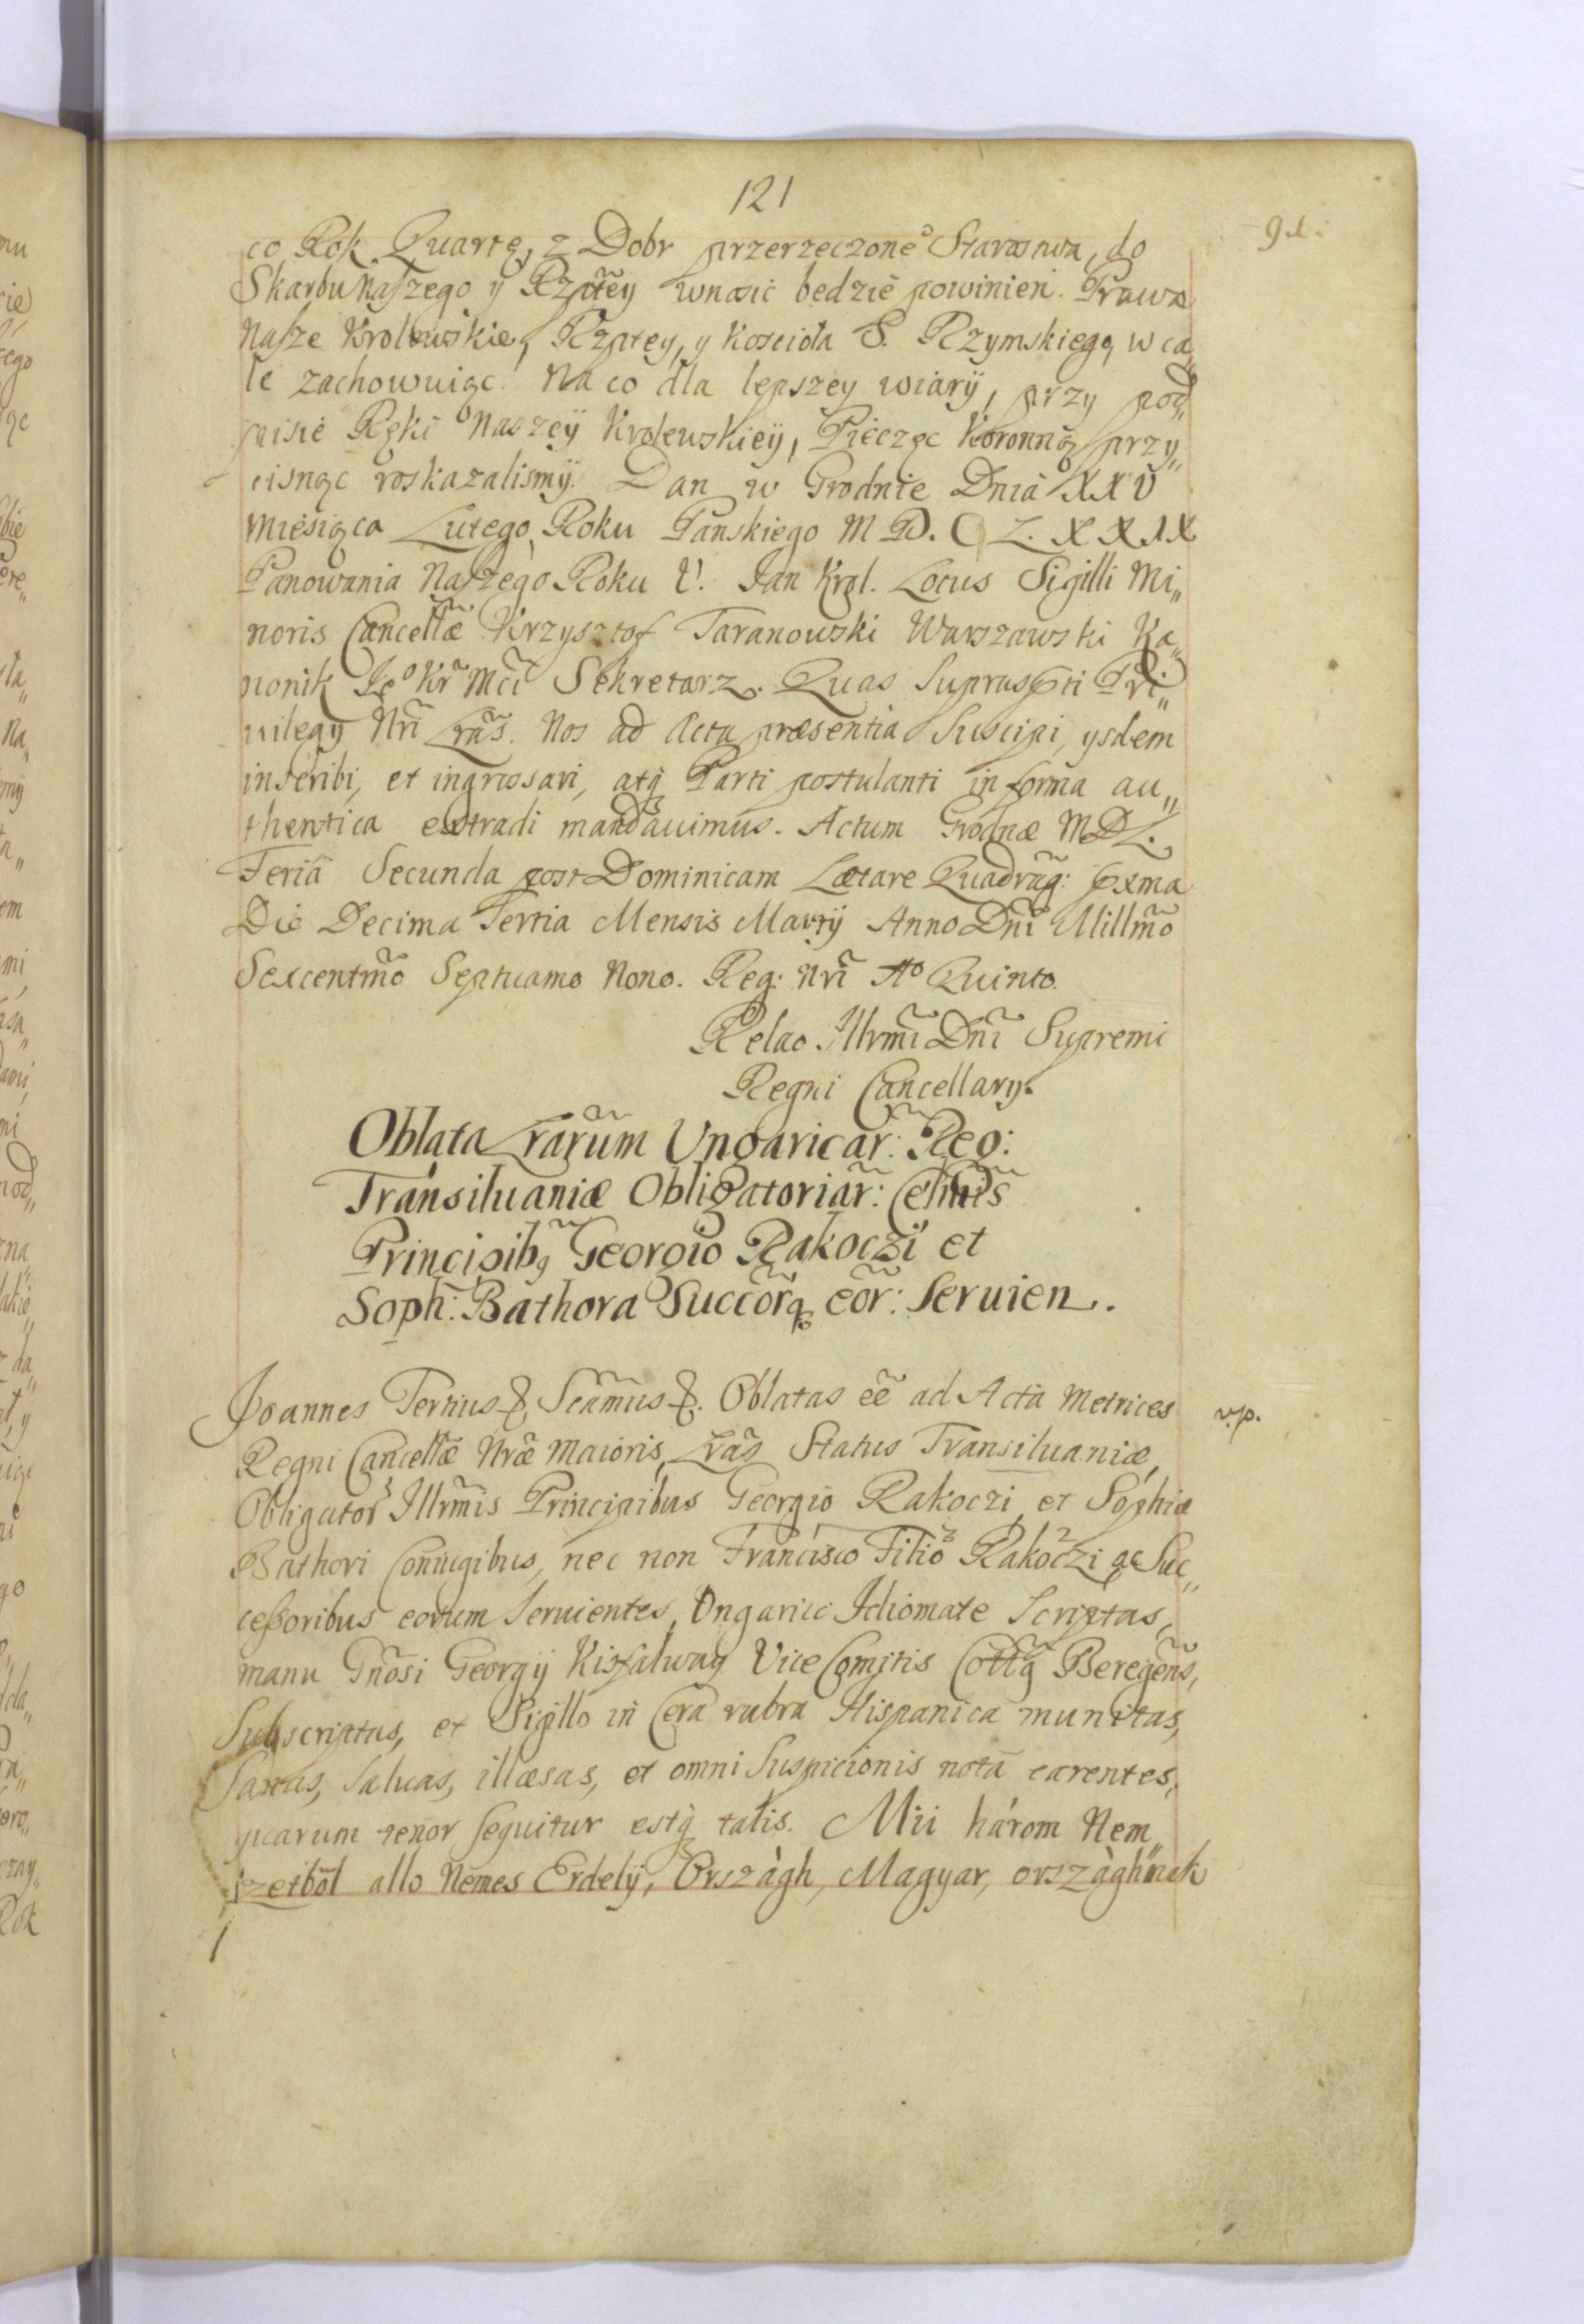 121
91.
co Rok Quartę, z Dobr przerzeczone° Starostwa, do
Skarbu Naszego y Rzptẽy wnosić bedzie powinien. Prawa
Nasze Krolewskie, Rzptey, y Kosciola S. Rzymskiego, w ca„
le zachowuiąc. Na co dla lepszey wiarÿ, przy pod„
pisie Ręki Naszeÿ Krolewskieÿ, Pieczęc Koronną przy„
cisnąc roskazalismÿ. Dan w Grodnie Dnia XXV
Miesiąca Lutego, Roku Panskiego M D. C L. XXIX
Panowania Naszego Roku V. Jan Krol. Locus Sigilli Mi„
noris Cancellæ Krzysztof Taranowski Warszawski Ka„
nonik Je° Kr̃ Mci Sekretarz. Quas Supraspti Pri„
uilegy Nr̃i Lrãs. Nos ad Acta præsentia Suscipi, ysdem
inscribi, et ingrossari, atq̃ Parti postulanti in forma au„
thentica extradi mandauimus. Actum Grodnæ MDL.
Feria Secunda post Dominicam Lætare Quadrag: pxma
Die Decima Tertia Mensis Martÿ Anno Dñi Millm̃o
Sexcentm̃o Septuamo Nono. Reg: Nr̃i A° Quinto.
Relao Illrmĩ Dñi Supremi
Regni Cancellary.
Oblata Lrarũm Ungaricar̃: Reg:
Transiluaniæ Obligatoriar̃: Celm̃is
Principibq̃ Georgio Rakoczi et
Soph: Bathora Succõrq eor̃: Seruien.
Joannes Tertius &, Scãmus &. Oblatas eẽ ad Acta Metrices
v.p.
Regni Cancellæ Nræ Maioris, Lrãs Status Transiluaniæ,
Obligator̃ Illrm̃is Principibus Georgio Rakoczi, et Sophia
Bathori Coniugibus, nec non Francisco Filio Rakoczi ac Suc„
cessoribus eorum Seruientes, Ungarico Idiomate Scriptas,
manu Gnõsi Georgÿ Kisfalway Vice Comitis Cottq̃ Beregens,
Subscriptas, et Sigillo in Cera rubra Hispanica munitas,
Sanas, Saluas, illæsas, et omni Suspicionis nota carentes,
quarum tenor sequitur estq̃ talis. Mii három Nem„
zetböl allo Nemes Erdelÿ, Orszàgh, Magyar, orszàghnak